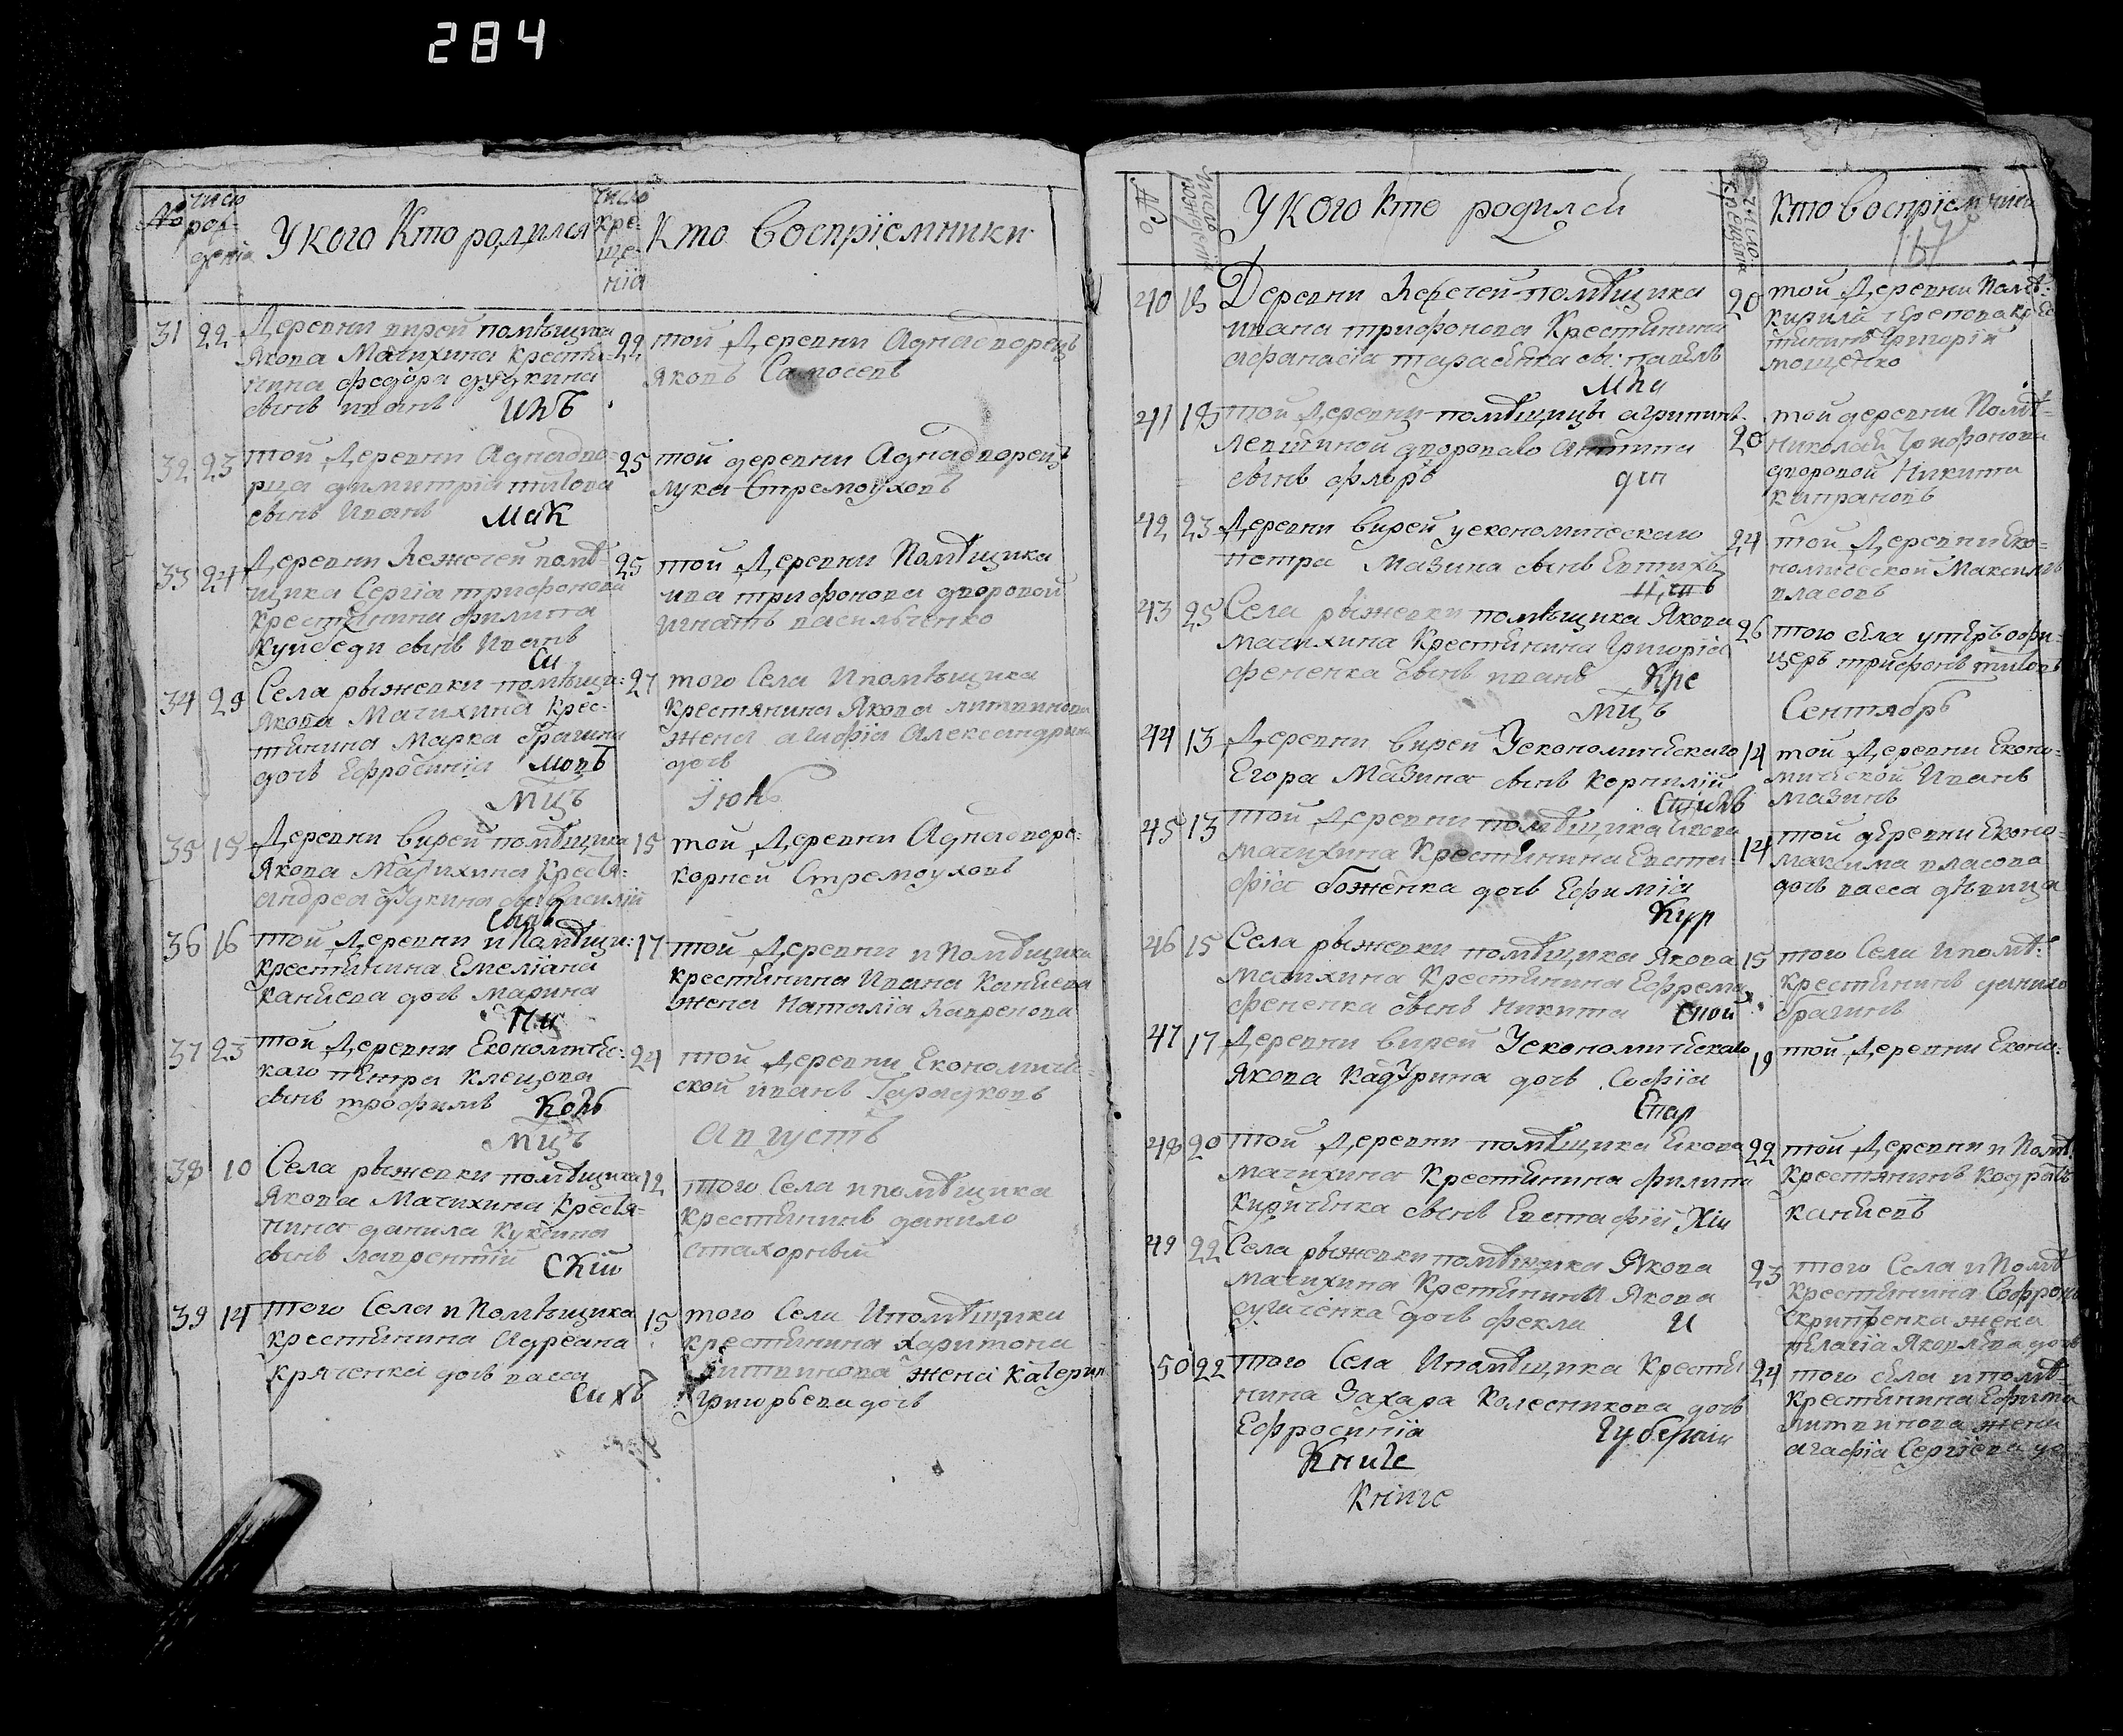 284
№
число
рож-
денія
У кого Кто родился
число
кре-
ще-
нія
Кто Воспріемники
31 22 Деревни вирей помѣщика
Якова Мачихина крестья-
нина федора
сынъ иванъ
22 той Деревни Аднадворецъ
Яковъ Самосевъ
32 23 той Деревни Аднадво-
рца димитріа титова
сынъ Иванъ Мак
25 той деревни Аднадворецъ
лука Стремоуховъ
33 24 Деревни помѣ-
щика Сергіа трифонова
крестянина филипа
сынъ Иванъ
Си
25 той Деревни Помѣщика
ива трифонова дворовой
игнатъ васильченко
34 29 Села рыжевки помѣщи:
Якова Мачихина крес-
тянина Марка брагина
дочь Ефросиніа мовъ
27 того Села Ипомѣщика
Крестянина Якова литвинова
жена агафіа Александрина
дочь
Мцъ Іюль
35 15 Деревни Вирей помѣщика
Якова Мачихина Крестя-
андреа
15 той Деревни Аднадворе-
корней Стремоуховъ
36 16 той Деревни и Помѣщи:
крестянина Емеліана
каніева дочь Марина
Пи
17 той Деревни и Помѣщика
крестянина Ивана Каніева
жена Наталіа Лавренова
37 23 той Деревни Економиче-
каго петра клецова
сынъ трофимъ
24 той Деревни Економиче-
ской иванъ
Мцъ Августъ
38 10 Села рыжевки помѣщика
Якова Мачихина Крестя-
нина данила
сынъ лаврентій Скій
12 того Села ипомѣщика
крестянинъ данило
39 14 того Села и Помѣщика
крестянина Адреана
дочь васса
15 того Села Ипомѣщика
крестянина Харитона
литвинова жена Катерин
григорьева дочь
№
число рожденія
У кого кто родился
число крещенія
Кто воспріемники
40 18 Деревни помѣщика
ивана трифонова Крестянина
афанасіа тарасенка сы: павелъ
20 той Деревни Помѣ:
кирила
тянинъ Григорій
41 18 той Деревни помѣщицы агрипины
дворова
сынъ флоръ
20 той деревни Помѣ-
Николая трифонова
дворовой Никита
42 23 Деревни вирей у економическаго
петра Мазина сынъ Евтихъ
24 той Деревни Еко-
номической Максимъ
власовъ
43 25 Села рыжевки помѣщика Якова
мачихина Крестянина Григоріа
фененка сынъ иванъ Кре
26 того села ундеръ офи-
церъ трифонъ титовъ
Мцъ Сентябрь
44 13 Деревни вирей У економическаго
Егора Мазина сынъ Корнилій
14 той Деревни Еконо-
мической Иванъ
мазинъ
45 13 той Деревни помѣщика Якова
мачихина Крестянина Евста-
фіа боженка дочь Ефиміа
Кур
14 той деревни Еконо-
максима власова
дочь васса дѣвица
46 15 Села рыжевки помѣщика Якова
Мачихина Крестянина Ефрема
фененка сынъ Никита
15 того Села Ипомѣ:
Крестянинъ данило
брагинъ
47 17 Деревни Вирей У економическаго
Якова Кадурина дочь Софіа
Епар
19 той Деревни Еконо-
48 20 той Деревни помѣщика Якова
мачихина Крестянина филипа
Киріченка сынъ Евстафій Хіи
22 той Деревни и Помѣ:
Крестянинъ Кодратъ
каніевъ
49 22 Села рыжевки помѣщика Якова
Мачихина Крестянина Якова
дочь фекла И
23 того Села и Помѣ
Крестянина Софрона
скрипченка жена
пелагіа Яковлева дочь
50 22 того Села Ипомѣщика Крестя
нина Захара Колесникова дочь
Ефросиніа Губерніи
24 того села ипомѣ-
Крестянина Ефима
литвинова жена
агафіа Сергіева
Книге
Книге